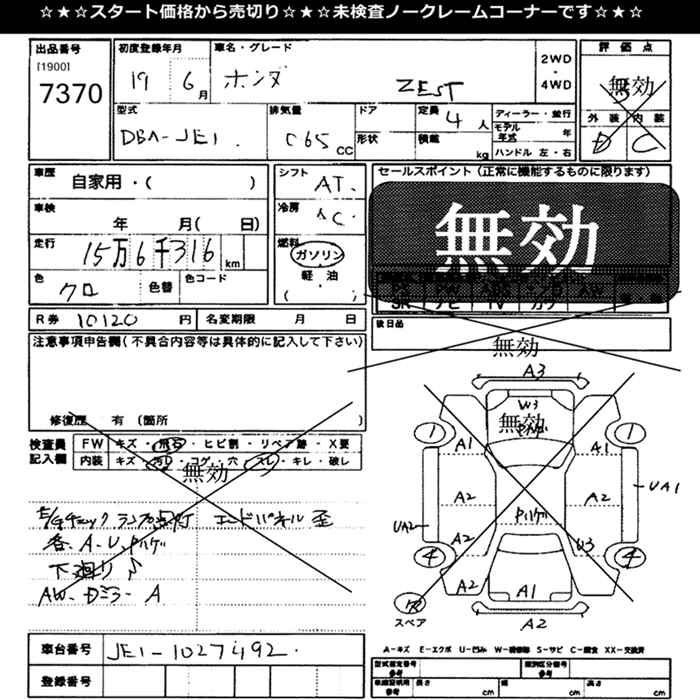 ☆★☆★スタート価格から売切り☆★☆★未検査ノークレームコーナーです☆★☆
出品番号
[1900]
7370
初度登録年月
19 6月
車名・グレード
ホンダ ZEST
2WD
・
4WD
評価点
無効
外装 内装
D C
型式
DBA-JE1
排気量
C65 CC
ドア
形状
定員 4人
積載 kg
ディーラー・並行
モデル年式 年
ハンドル 左・右
車歴
自家用・( )
車検
年 月( 日)
走行
15万6千316 km
色
クロ
色替
色コード
シフト
AT
冷房
AC
燃料
ガソリン
軽・油
( )
セールスポイント(正常に機能するものに限ります)
無効
SR ナビ TV カワ
R券 10120 円
名変期限 月 日
後日品
無効
注意事項申告欄(不具合内容等は具体的に記入して下さい)
修復歴 有(箇所 )
検査員記入欄
FW キズ・飛石・ヒビ割・リペア跡・X要
内装 キズ・汚れ・コゲ・穴・スレ・キレ・破レ
無効
E/Gチェックランプ点灯 エンドパネル歪
各、A、U、Pハゲ
下廻りS
AW-Dミラー A
A3
W3
無効
1 A1 A1 1
A2 A2 UA1
Pハゲ
UA2 A2 U3
4 A2 A1 4
スペア
A2
A-キズ E-エクボ U-凹み W-補修跡 S-サビ C-腐食 XX-交換済
車台番号
JE1-1027492
登録番号
型式指定番号 参考
類別区分番号 参考
車検証明用 参考
長さ cm
幅 cm
高さ cm